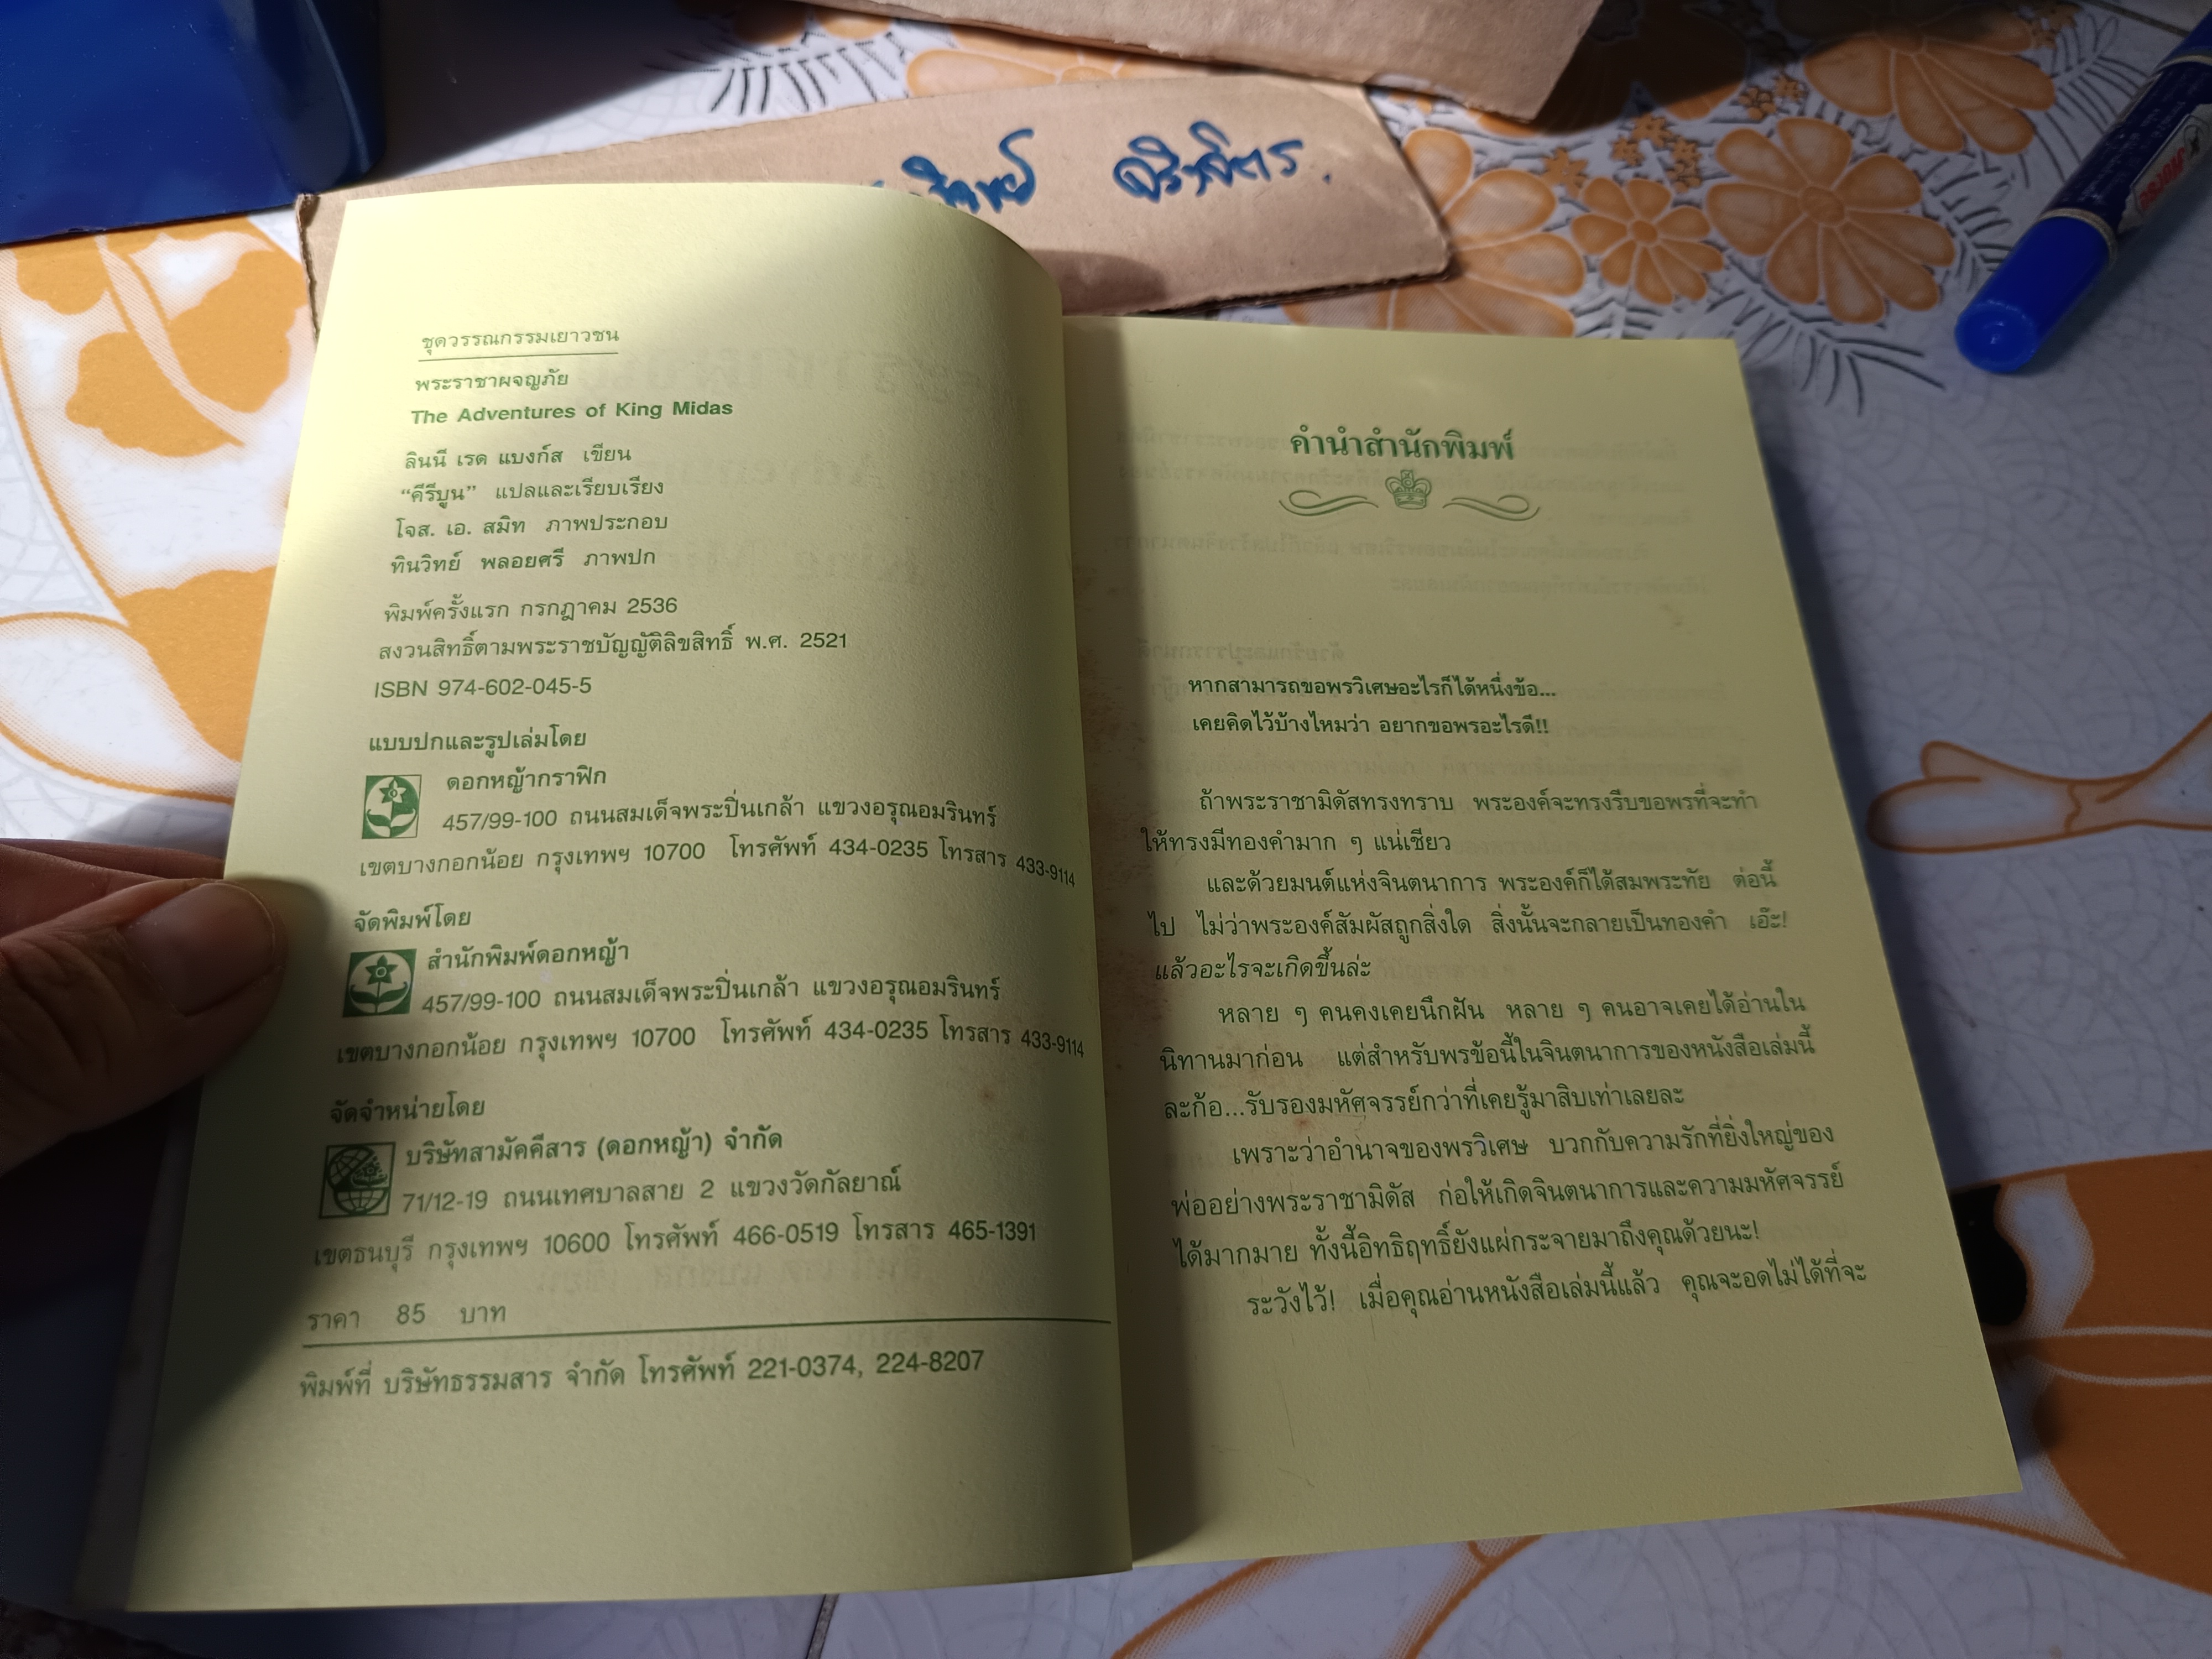 ชุดวรรณกรรมเยาวชน
พระราชาผจญภัย
The Adventures of King Midas
ลินนี เรด แบงก์ส เขียน
“คีรีบูน” แปลและเรียบเรียง
โจส. เอ. สมิท ภาพประกอบ
ทินวิทย์ พลอยศรี ภาพปก
พิมพ์ครั้งแรก กรกฎาคม 2536
สงวนสิทธิ์ตามพระราชบัญญัติลิขสิทธิ์ พ.ศ. 2521
ISBN 974-602-045-5
แบบปกและรูปเล่มโดย
ดอกหญ้ากราฟิก
457/99-100 ถนนสมเด็จพระปิ่นเกล้า แขวงอรุณอมรินทร์
เขตบางกอกน้อย กรุงเทพฯ 10700 โทรศัพท์ 434-0235 โทรสาร 433-9114
จัดพิมพ์โดย
สำนักพิมพ์ดอกหญ้า
457/99-100 ถนนสมเด็จพระปิ่นเกล้า แขวงอรุณอมรินทร์
เขตบางกอกน้อย กรุงเทพฯ 10700 โทรศัพท์ 434-0235 โทรสาร 433-9114
จัดจำหน่ายโดย
บริษัทสามัคคีสาร (ดอกหญ้า) จำกัด
71/12-19 ถนนเทศบาลสาย 2 แขวงวัดกัลยาณ์
เขตธนบุรี กรุงเทพฯ 10600 โทรศัพท์ 466-0519 โทรสาร 465-1391
ราคา 85 บาท
พิมพ์ที่ บริษัทธรรมสาร จำกัด โทรศัพท์ 221-0374, 224-8207
คำนำสำนักพิมพ์
หากสามารถขอพรวิเศษอะไรก็ได้หนึ่งข้อ...
เคยคิดไว้บ้างไหมว่า อยากขอพรอะไรดี!!
ถ้าพระราชามิดัสทรงทราบ พระองค์จะทรงรีบขอพรที่จะทำ
ให้ทรงมีทองคำมาก ๆ แน่เชียว
และด้วยมนต์แห่งจินตนาการ พระองค์ก็ได้สมพระทัย ต่อนี้
ไป ไม่ว่าพระองค์สัมผัสถูกสิ่งใด สิ่งนั้นจะกลายเป็นทองคำ เอ๊ะ!
แล้วอะไรจะเกิดขึ้นล่ะ
หลาย ๆ คนคงเคยนึกฝัน หลาย ๆ คนอาจเคยได้อ่านใน
นิทานมาก่อน แต่สำหรับพรข้อนี้ในจินตนาการของหนังสือเล่มนี้
ละก้อ...รับรองมหัศจรรย์กว่าที่เคยรู้มาสิบเท่าเลยละ
เพราะว่าอำนาจของพรวิเศษ บวกกับความรักที่ยิ่งใหญ่ของ
พ่ออย่างพระราชามิดัส ก่อให้เกิดจินตนาการและความมหัศจรรย์
ได้มากมาย ทั้งนี้อิทธิฤทธิ์ยังแผ่กระจายมาถึงคุณด้วยนะ!
ระวังไว้! เมื่อคุณอ่านหนังสือเล่มนี้แล้ว คุณจะอดไม่ได้ที่จะ